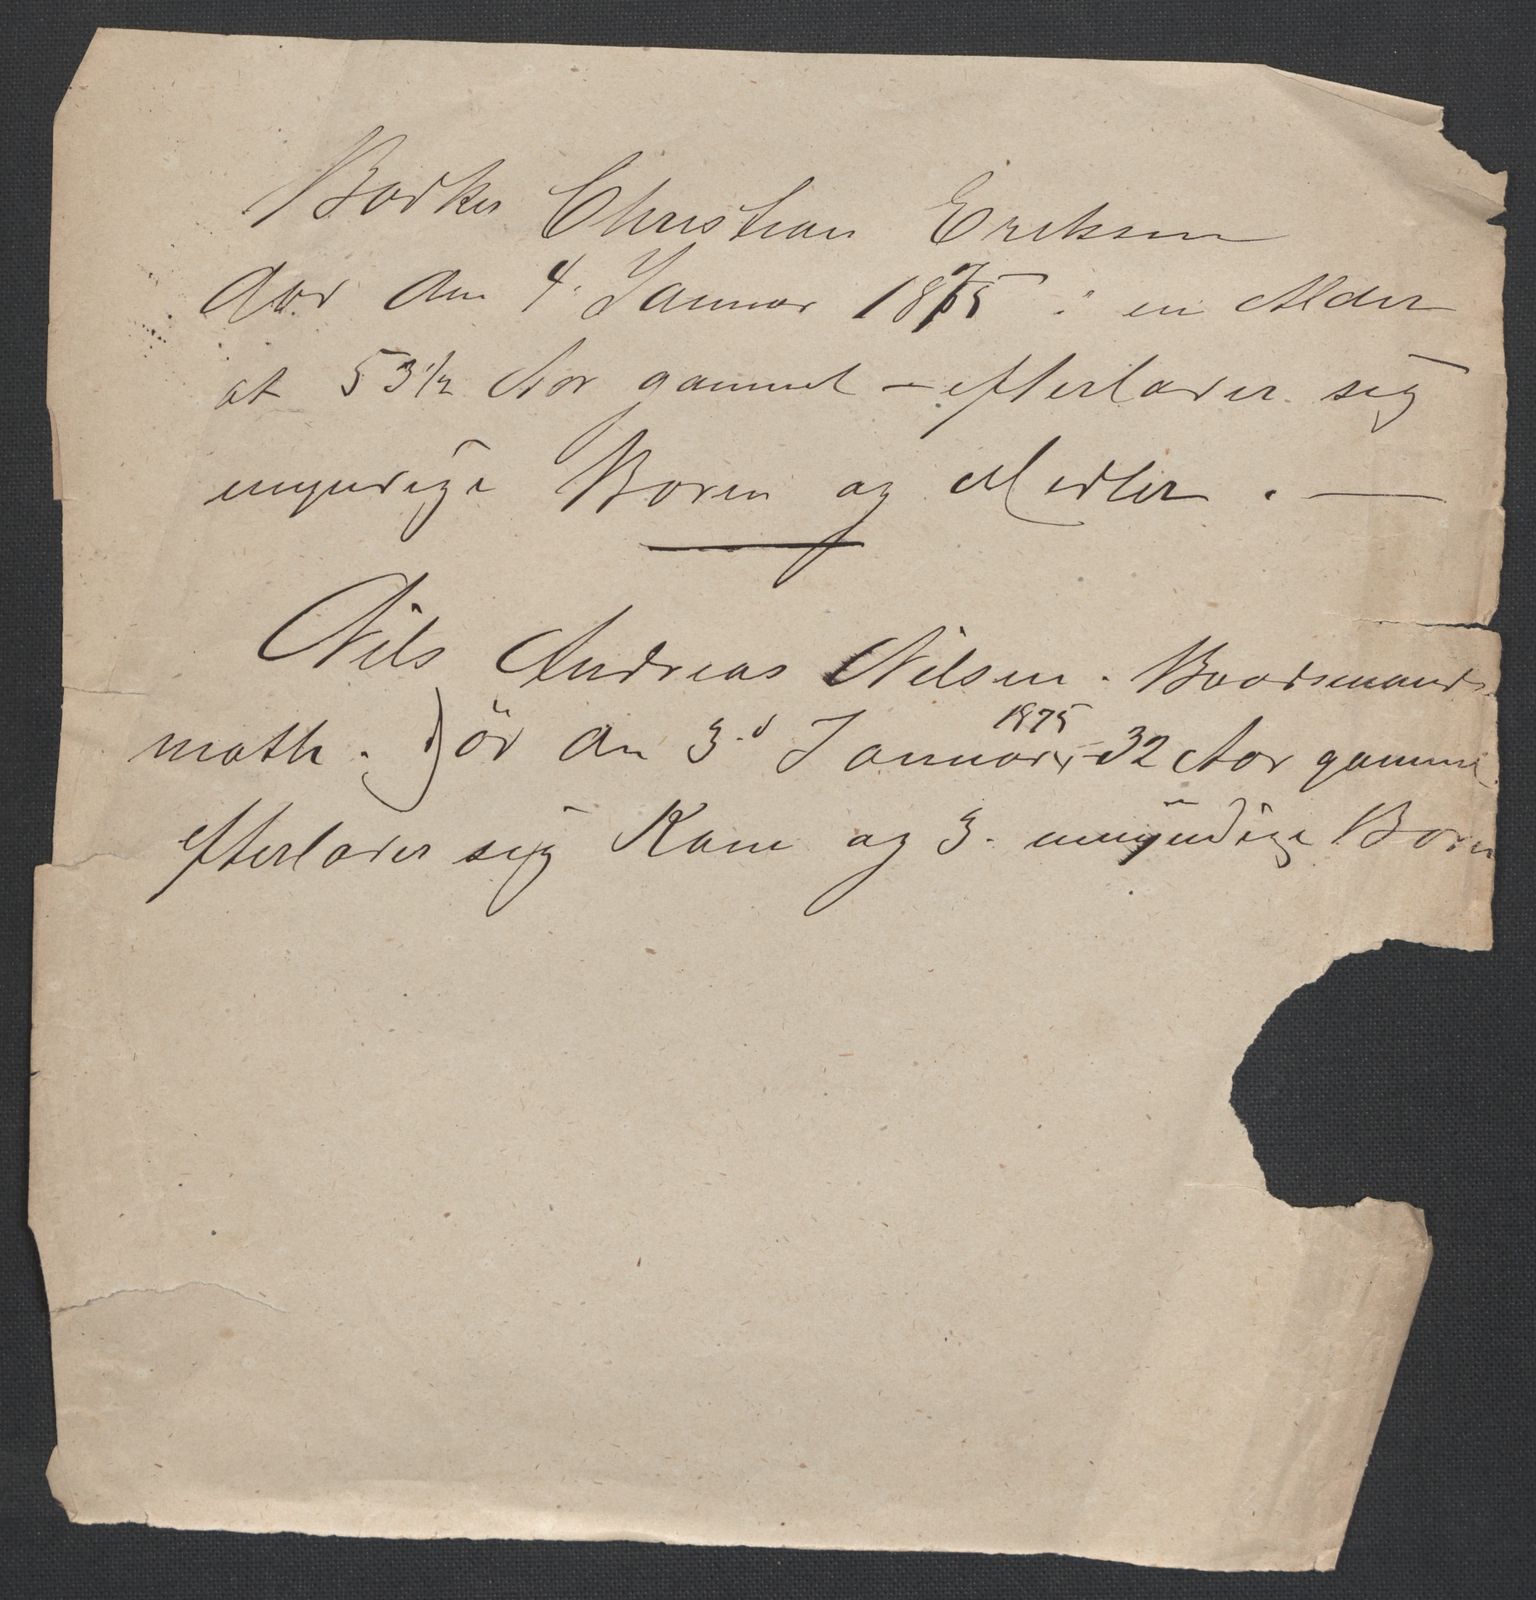 Bødker Christian Eriksen
døde den 4. Januar 1875 i en Alder
af 53½ Aar gammel – efterlader sig
umyndige Børn og Midler. —
Nils Andreas Nilsen. Baadsmands
math. Død den 3.d Januar 1875, 32 Aar gammel
efterlader sig Kone og 3. umyndige Børn